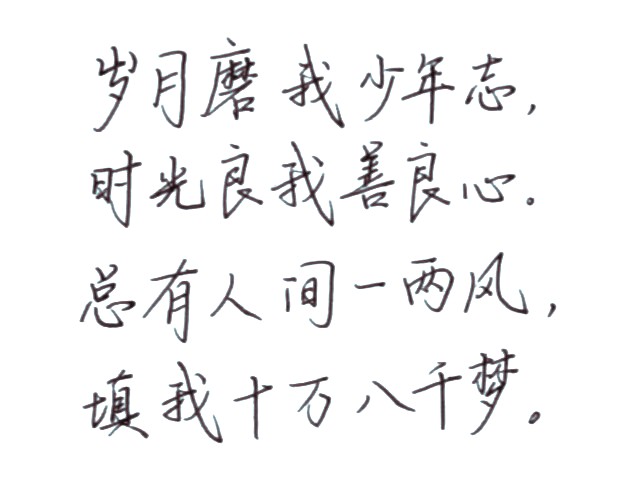 岁月磨我少年志,
时光良我善良心.
总有人间一两风,
填我十万八千梦。